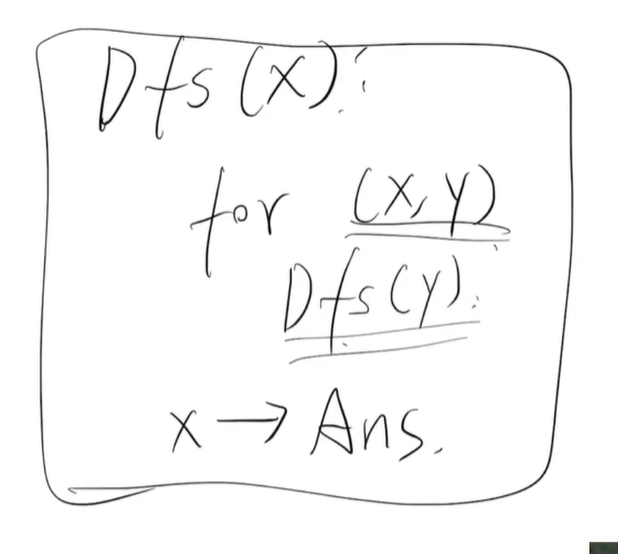 Dfs(x):
for (x,y)
Dfs(y).
x → Ans.